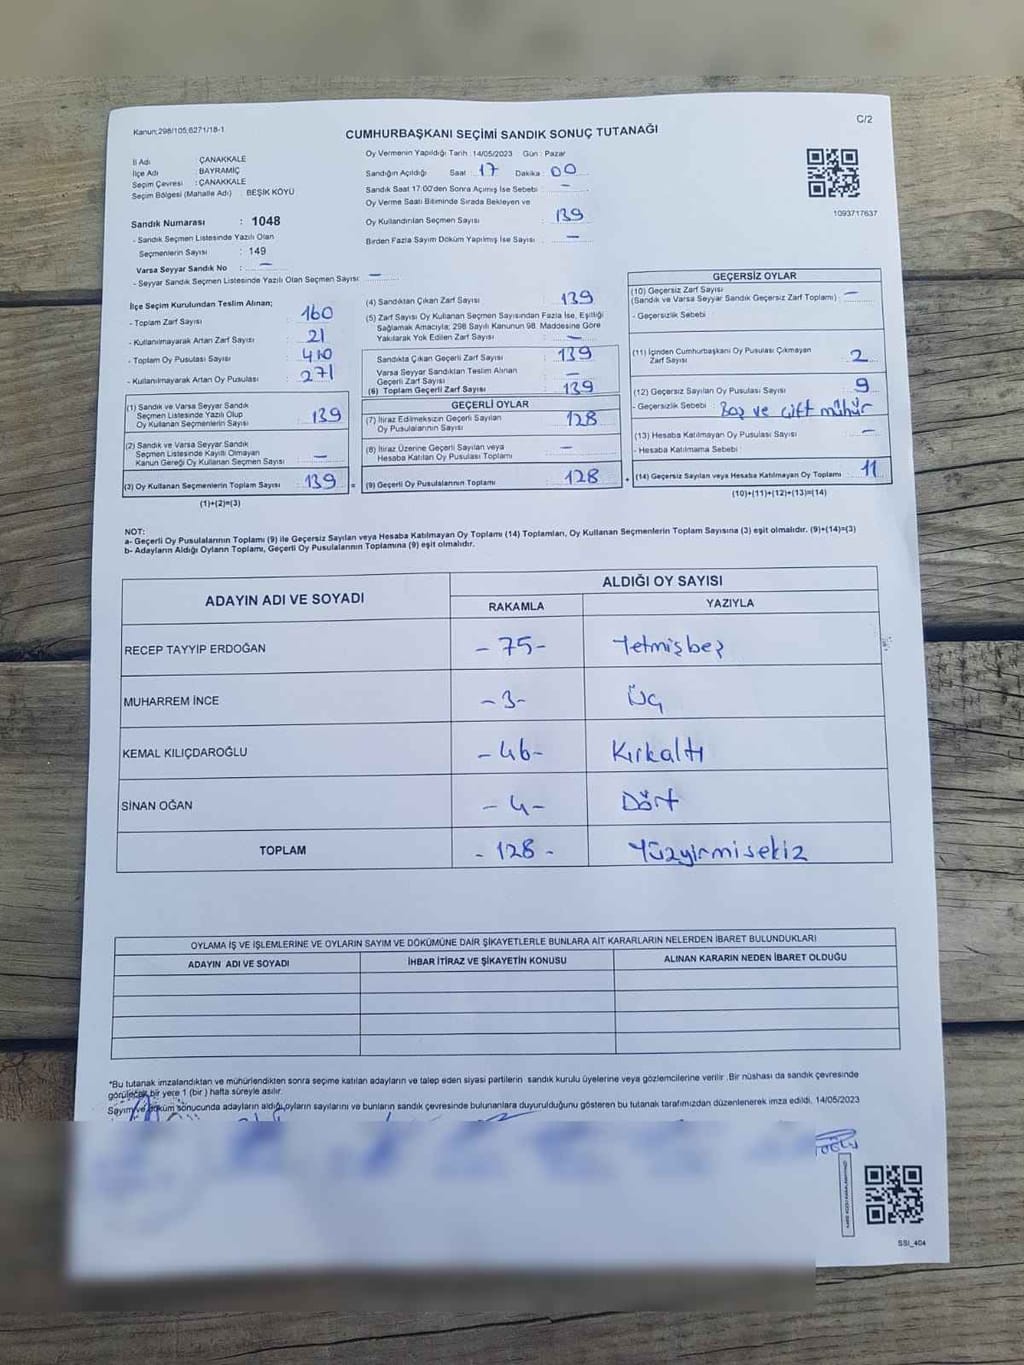 Kanun;298/105;6271/18-1
C/2
CUMHURBAŞKANI SEÇİMİ SANDIK SONUÇ TUTANAĞI
İl Adı : ÇANAKKALE
İlçe Adı : BAYRAMİÇ
Seçim Çevresi : ÇANAKKALE
Seçim Bölgesi (Mahalle Adı) : BEŞİK KÖYÜ
Sandık Numarası : 1048
- Sandık Seçmen Listesinde Yazılı Olan
Seçmenlerin Sayısı : 149
Varsa Seyyar Sandık No : —
- Seyyar Sandık Seçmen Listesinde Yazılı Olan Seçmen Sayısı: —
Oy Vermenin Yapıldığı Tarih : 14/05/2023 Gün : Pazar
Sandığın Açıldığı Saat : 17 Dakika : 00
Sandık Saat 17:00'den Sonra Açımış İse Sebebi : —
Oy Verme Saati Bitiminde Sırada Bekleyen ve
Oy Kullandırılan Seçmen Sayısı : 139
Birden Fazla Sayım Döküm Yapılmış İse Sayısı : —
1093717637
İlçe Seçim Kurulundan Teslim Alınan;
- Toplam Zarf Sayısı : 160
- Kullanılmayarak Artan Zarf Sayısı : 21
- Toplam Oy Pusulası Sayısı : 410
- Kullanılmayarak Artan Oy Pusulası : 271
(1) Sandık ve Varsa Seyyar Sandık
Seçmen Listesinde Yazılı Olup
Oy Kullanan Seçmenlerin Sayısı : 139
(2) Sandık ve Varsa Seyyar Sandık
Seçmen Listesinde Kayıtlı Olmayan
Kanun Gereği Oy Kullanan Seçmen Sayısı : —
(3) Oy Kullanan Seçmenlerin Toplam Sayısı : 139
(1)+(2)=(3)
(4) Sandıktan Çıkan Zarf Sayısı : 139
(5) Zarf Sayısı Oy Kullanan Seçmen Sayısından Fazla İse, Eşitliği
Sağlamak Amacıyla; 298 Sayılı Kanunun 98. Maddesine Göre
Yakılarak Yok Edilen Zarf Sayısı : —
Sandıkta Çıkan Geçerli Zarf Sayısı : 139
Varsa Seyyar Sandıktan Teslim Alınan
Geçerli Zarf Sayısı : —
(6) Toplam Geçerli Zarf Sayısı : 139
GEÇERLİ OYLAR
(7) İtiraz Edilmeksizin Geçerli Sayılan
Oy Pusulalarının Sayısı : 128
(8) İtiraz Üzerine Geçerli Sayılan veya
Hesaba Katılan Oy Pusulası Toplamı : —
= (9) Geçerli Oy Pusulalarının Toplamı : 128
GEÇERSİZ OYLAR
(10) Geçersiz Zarf Sayısı
(Sandık ve Varsa Seyyar Sandık Geçersiz Zarf Toplamı) : —
- Geçersizlik Sebebi :
(11) İçinden Cumhurbaşkanı Oy Pusulası Çıkmayan
Zarf Sayısı : 2
(12) Geçersiz Sayılan Oy Pusulası Sayısı : 9
- Geçersizlik Sebebi : Boş ve çift mühür
(13) Hesaba Katılmayan Oy Pusulası Sayısı : —
- Hesaba Katılmama Sebebi :
+ (14) Geçersiz Sayılan veya Hesaba Katılmayan Oy Toplamı : 11
(10)+(11)+(12)+(13)=(14)
NOT:
a- Geçerli Oy Pusulalarının Toplamı (9) ile Geçersiz Sayılan veya Hesaba Katılmayan Oy Toplamı (14) Toplamları, Oy Kullanan Seçmenlerin Toplam Sayısına (3) eşit olmalıdır. (9)+(14)=(3)
b- Adayların Aldığı Oyların Toplamı, Geçerli Oy Pusulalarının Toplamına (9) eşit olmalıdır.
ADAYIN ADI VE SOYADI ALDIĞI OY SAYISI
RAKAMLA YAZIYLA
RECEP TAYYİP ERDOĞAN -75- Yetmişbeş
MUHARREM İNCE -3- Üç
KEMAL KILIÇDAROĞLU -46- Kırkaltı
SİNAN OĞAN -4- Dört
TOPLAM -128- Yüzyirmisekiz
OYLAMA İŞ VE İŞLEMLERİNE VE OYLARIN SAYIM VE DÖKÜMÜNE DAİR ŞİKAYETLERLE BUNLARA AİT KARARLARIN NELERDEN İBARET BULUNDUKLARI
ADAYIN ADI VE SOYADI İHBAR İTİRAZ VE ŞİKAYETİN KONUSU ALINAN KARARIN NEDEN İBARET OLDUĞU
*Bu tutanak imzalandıktan ve mühürlendikten sonra seçime katılan adayların ve talep eden siyasi partilerin sandık kurulu üyelerine veya gözlemcilerine verilir .Bir nüshası da sandık çevresinde
görülecek bir yere 1 (bir ) hafta süreyle asılır.
Sayım ve döküm sonucunda adayların aldığı oyların sayılarını ve bunların sandık çevresinde bulunanlara duyurulduğunu gösteren bu tutanak tarafımızdan düzenlenerek imza edildi. 14/05/2023
SSI_404